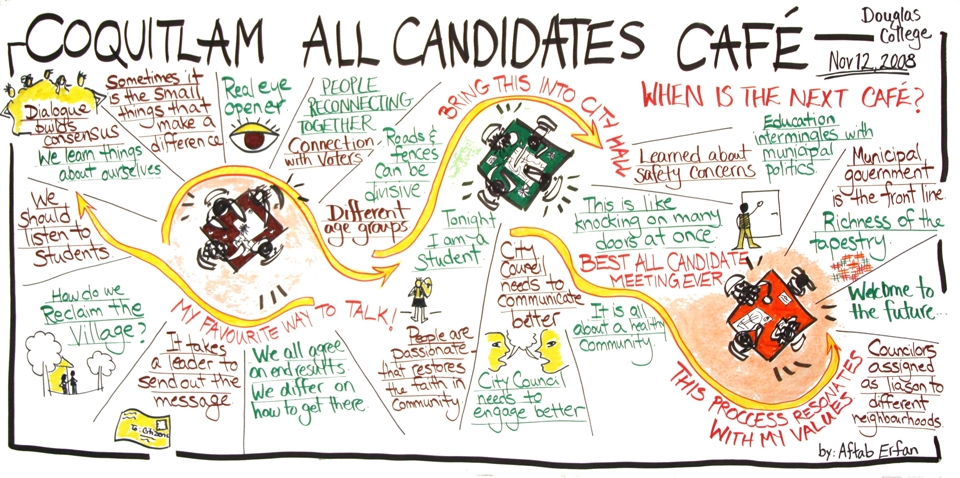 COQUITLAM ALL CANDIDATES CAFÉ
Douglas
College
Nov 12, 2008
Dialogue
builds
consensus
We learn things
about ourselves
Sometimes it
is the small
things that
make a
difference
Real eye
opener
PEOPLE
RECONNECTING
TOGETHER
Connection
with Voters
Roads &
fences
Can be
divisive
Different
age groups
BRING THIS INTO CITY HALL
WHEN IS THE NEXT CAFÉ?
Learned about
safety concerns
Education
intermingles with
municipal
politics.
Municipal
government
is the front line
Richness of the
tapestry
Welcome to
the future...
We
should
listen to
Students.
How do we
Reclaim the
Village?
It takes
a leader to
send out the
message
To: Citizens
MY FAVOURITE WAY TO TALK!
We all agree
on end results
We differ on
how to get there.
Tonight
I am a
student
People are
passionate
that restores
the faith in
Community.
City
Council
needs to
communicate
better
City Council
needs to
engage better
This is like
knocking on many
doors at once.
BEST ALL CANDIDATE
MEETING EVER
It is all
about a healthy
Community.
THIS PROCCESS RESONATES
WITH MY VALUES
Councilors
assigned
as liason to
different
neighbourhoods.
by: Aftab Erfan